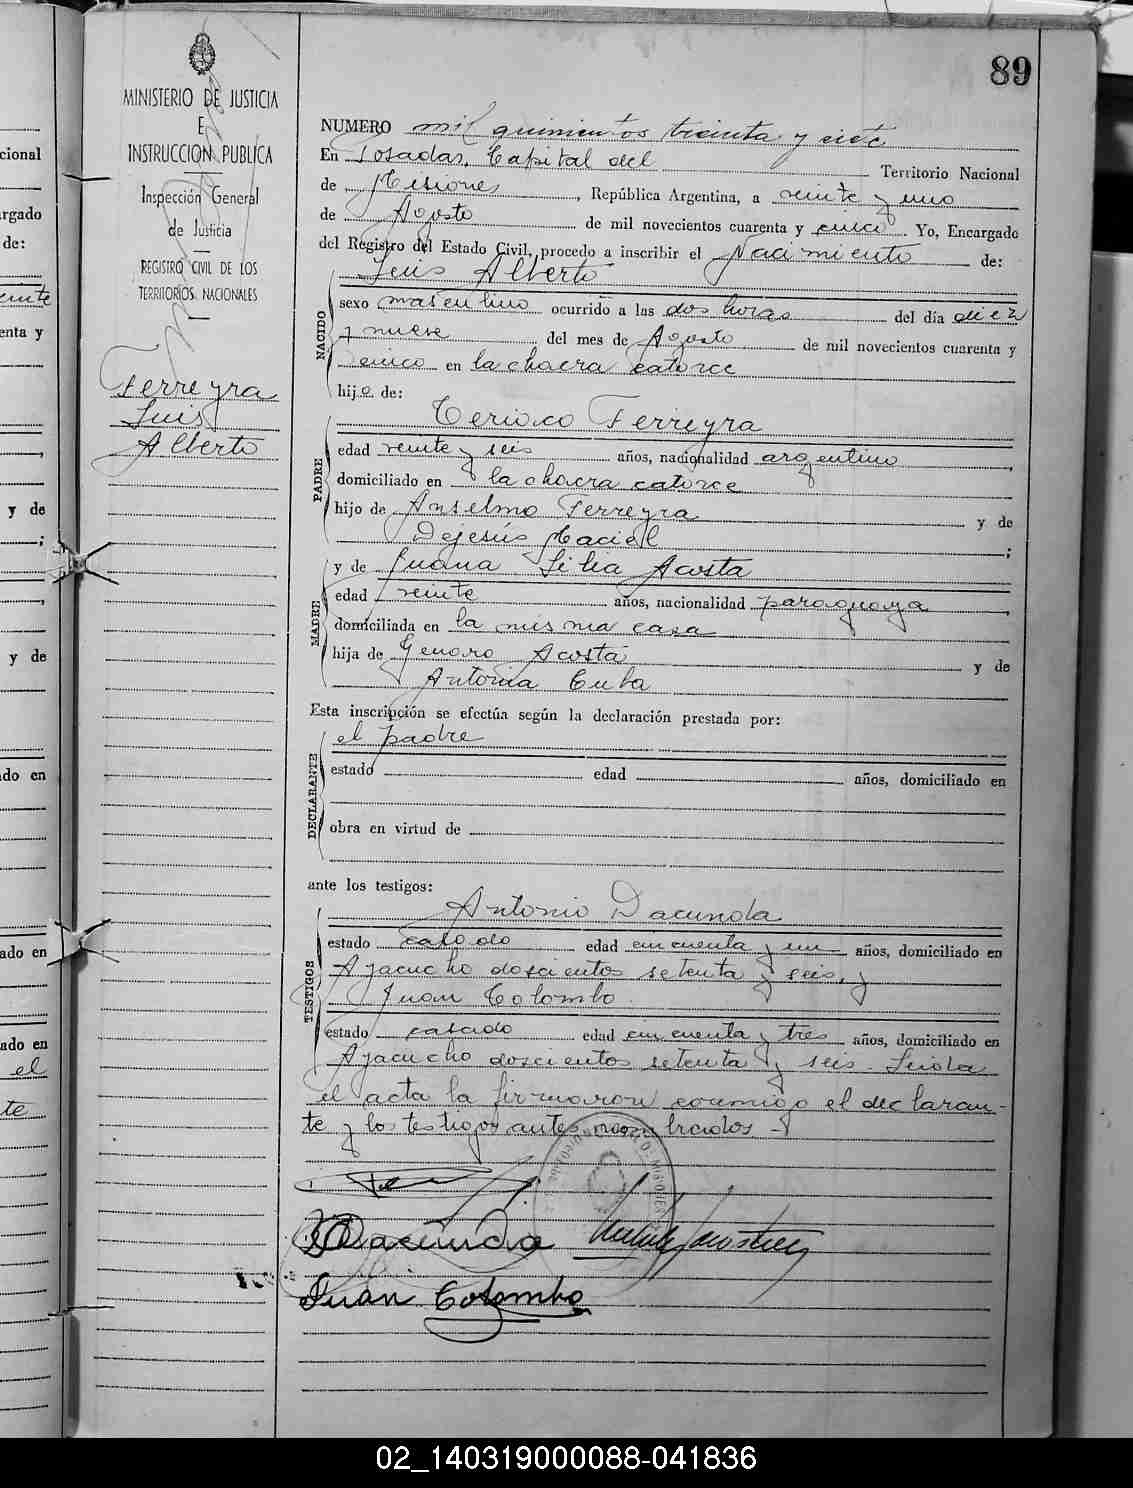 89
MINISTERIO DE JUSTICIA
E
INSTRUCCION PUBLICA
Inspección General
de Justicia
REGISTRO CIVIL DE LOS
TERRITORIOS NACIONALES
Ferreyra
Luis
Alberto
NUMERO mil quinientos treinta y siete
En Posadas, Capital del Territorio Nacional
de Misiones, República Argentina, a veinte y uno
de Agosto de mil novecientos cuarenta y cinco. Yo, Encargado
del Registro del Estado Civil, procedo a inscribir el Nacimiento de:
Luis Alberto
NACIDO
sexo masculino ocurrido a las dos horas del día diez
y nueve del mes de Agosto de mil novecientos cuarenta y
cinco en la chacra catorce
hijo de:
Ferreyra
PADRE
edad veinte y seis años, nacionalidad argentino,
domiciliado en la chacra catorce
hijo de Anselmo Ferreyra y de
Dejesús Maciel;
y de Juana Lilia Acosta
MADRE
edad veinte años, nacionalidad paraguaya,
domiciliada en la misma casa
hija de Genaro Acosta y de
Antonia
Esta inscripción se efectúa según la declaración prestada por:
el padre
DECLARANTE
estado edad años, domiciliado en
obra en virtud de
ante los testigos:
Antonio Dacunda
TESTIGOS
estado casado edad cincuenta y un años, domiciliado en
Ayacucho doscientos setenta y seis, y
Juan Colombo
estado casado edad cincuenta y tres años, domiciliado en
Ayacucho doscientos setenta y seis. Leida
el acta la firmaron conmigo el declaran-
te y los testigos antes nombrados
Dacunda
Juan Colombo
cional
argado
de:
enta y
y de
;
y de
do en
ado en
ado en
el
te
02_140319000088-041836